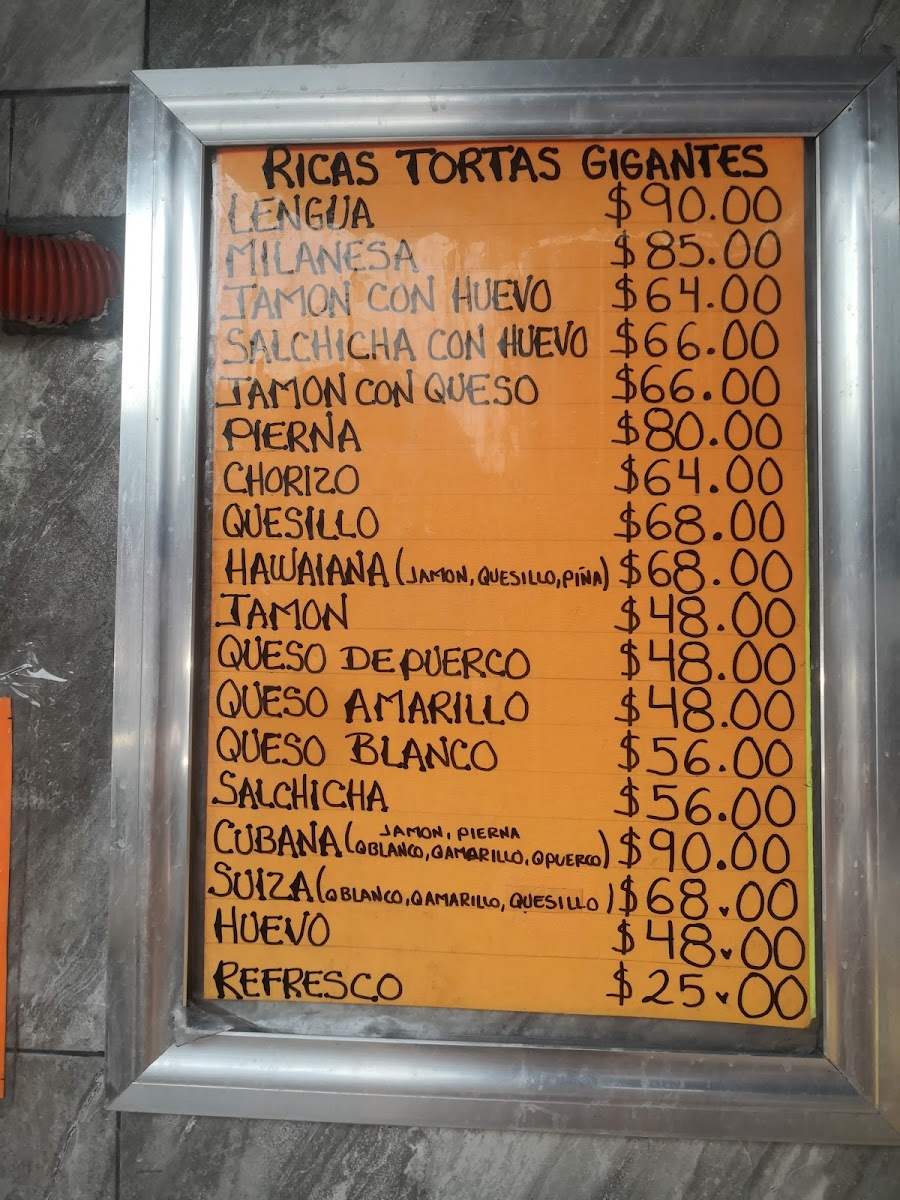 RICAS TORTAS GIGANTES
LENGUA $90.00
MILANESA $85.00
JAMON CON HUEVO $64.00
SALCHICHA CON HUEVO $66.00
JAMON CON QUESO $66.00
PIERNA $80.00
CHORIZO $64.00
QUESILLO $68.00
HAWAIANA (JAMON, QUESILLO, PIÑA) $68.00
JAMON $48.00
QUESO DE PUERCO $48.00
QUESO AMARILLO $48.00
QUESO BLANCO $56.00
SALCHICHA $56.00
CUBANA (JAMON, PIERNA
QBLANCO, QAMARILLO, QPUERCO) $90.00
SUIZA (QBLANCO, QAMARILLO, QUESILLO) $68.00
HUEVO $48.00
REFRESCO $25.00